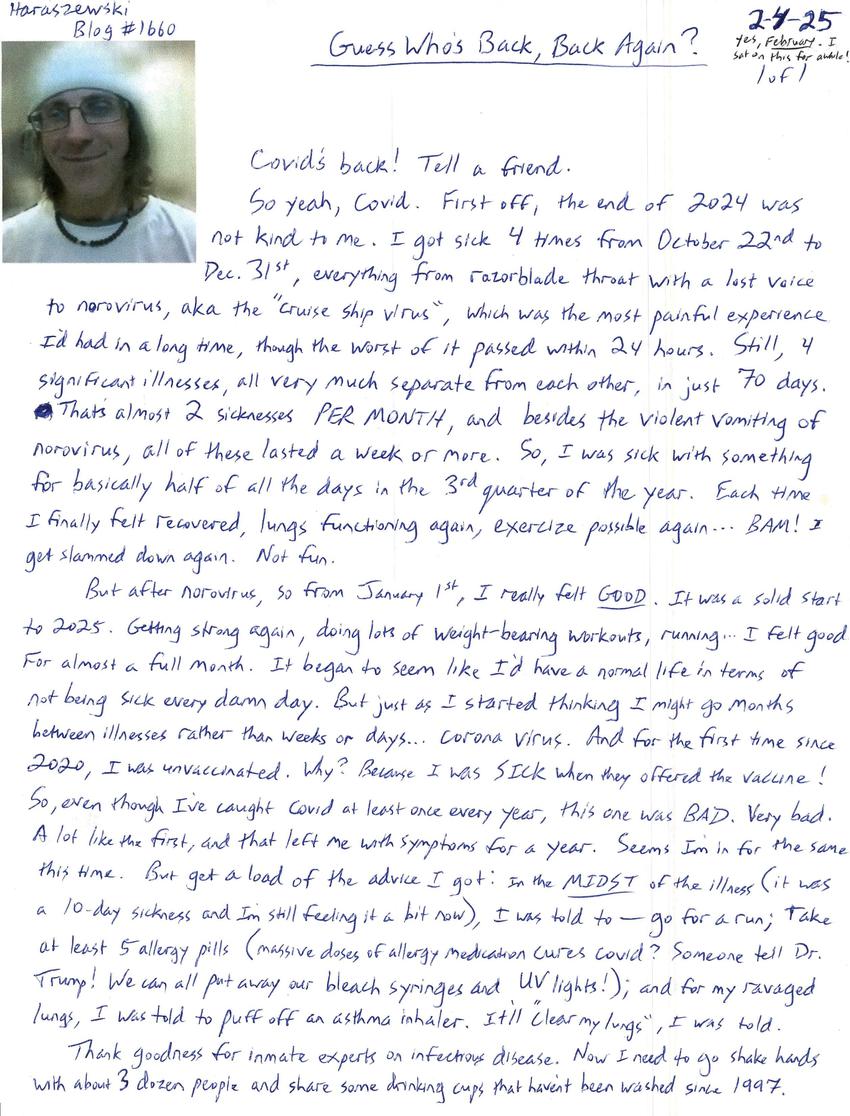 Haraszewski
Blog #1660
2-4-25
yes, February. I
sat on this for awhile!
1 of 1
Guess Who's Back, Back Again?
Covid's back! Tell a friend.
So yeah, Covid. First off, the end of 2024 was
not kind to me. I got sick 4 times from October 22nd to
Dec. 31st, everything from razorblade throat with a lost voice
to norovirus, aka the "cruise ship virus", which was the most painful experience
I'd had in a long time, though the worst of it passed within 24 hours. Still, 4
significant illnesses, all very much separate from each other, in just 70 days.
That's almost 2 sicknesses PER MONTH, and besides the violent vomiting of
norovirus, all of these lasted a week or more. So, I was sick with something
for basically half of all the days in the 3rd quarter of the year. Each time
I finally felt recovered, lungs functioning again, exercize possible again... BAM! I
get slammed down again. Not fun.
But after norovirus, so from January 1st, I really felt GOOD. It was a solid start
to 2025. Getting strong again, doing lots of weight-bearing workouts, running... I felt good
For almost a full month. It began to seem like I'd have a normal life in terms of
not being sick every damn day. But just as I started thinking I might go months
between illnesses rather than weeks or days... corona virus. And for the first time since
2020, I was unvaccinated. Why? Because I was SICK when they offered the vaccine!
So, even though I've caught Covid at least once every year, this one was BAD. Very bad.
A lot like the first, and that left me with symptoms for a year. Seems I'm in for the same
this time. But get a load of the advice I got: In the MIDST of the illness (it was
a 10-day sickness and I'm still feeling it a bit now), I was told to — go for a run; Take
at least 5 allergy pills (massive doses of allergy medication cures covid? Someone tell Dr.
Trump! We can all put away our bleach syringes and UV lights!); and for my ravaged
lungs, I was told to puff off an asthma inhaler. It'll "clear my lungs", I was told.
Thank goodness for inmate experts on infectious disease. Now I need to go shake hands
with about 3 dozen people and share some drinking cups that haven't been washed since 1997.